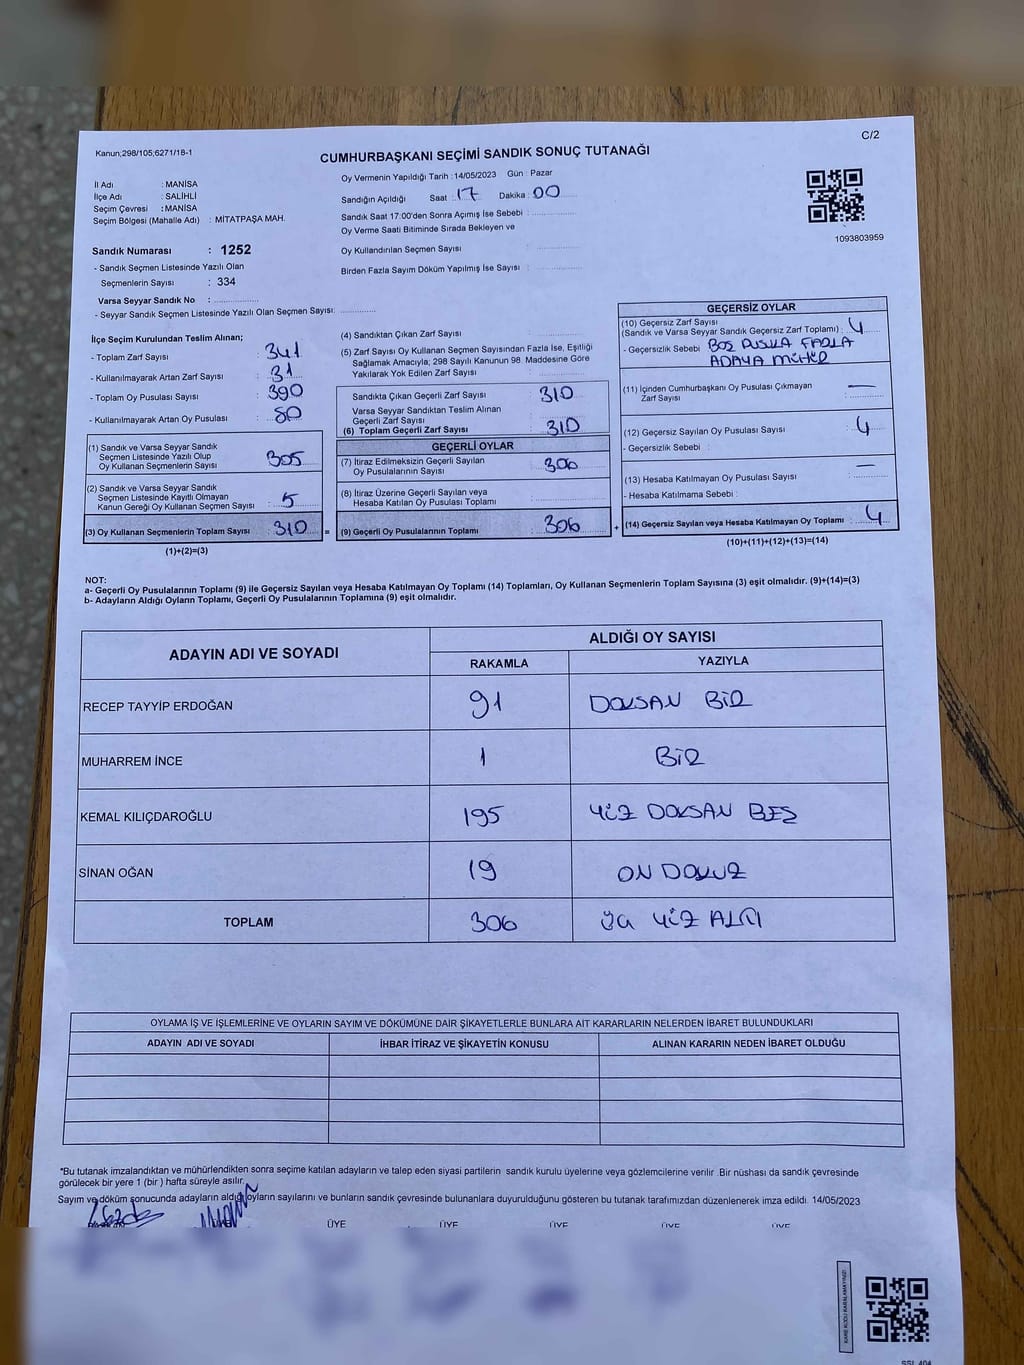 C/2
Kanun;298/105;6271/18-1
CUMHURBAŞKANI SEÇİMİ SANDIK SONUÇ TUTANAĞI
İl Adı : MANİSA
İlçe Adı : SALİHLİ
Seçim Çevresi : MANİSA
Seçim Bölgesi (Mahalle Adı) : MİTATPAŞA MAH.
Oy Vermenin Yapıldığı Tarih : 14/05/2023 Gün : Pazar
Sandığın Açıldığı Saat : 17 Dakika : 00
Sandık Saat 17:00'den Sonra Açımış İse Sebebi :
Oy Verme Saati Bitiminde Sırada Bekleyen ve
Oy Kullandırılan Seçmen Sayısı :
Birden Fazla Sayım Döküm Yapılmış İse Sayısı :
1093803959
Sandık Numarası : 1252
- Sandık Seçmen Listesinde Yazılı Olan
Seçmenlerin Sayısı : 334
Varsa Seyyar Sandık No :
- Seyyar Sandık Seçmen Listesinde Yazılı Olan Seçmen Sayısı:
İlçe Seçim Kurulundan Teslim Alınan;
- Toplam Zarf Sayısı : 341
- Kullanılmayarak Artan Zarf Sayısı : 31
- Toplam Oy Pusulası Sayısı : 390
- Kullanılmayarak Artan Oy Pusulası : 80
(1) Sandık ve Varsa Seyyar Sandık
Seçmen Listesinde Yazılı Olup
Oy Kullanan Seçmenlerin Sayısı : 305
(2) Sandık ve Varsa Seyyar Sandık
Seçmen Listesinde Kayıtlı Olmayan
Kanun Gereği Oy Kullanan Seçmen Sayısı : 5
(3) Oy Kullanan Seçmenlerin Toplam Sayısı : 310 =
(1)+(2)=(3)
(4) Sandıktan Çıkan Zarf Sayısı :
(5) Zarf Sayısı Oy Kullanan Seçmen Sayısından Fazla İse, Eşitliği
Sağlamak Amacıyla; 298 Sayılı Kanunun 98. Maddesine Göre
Yakılarak Yok Edilen Zarf Sayısı :
Sandıkta Çıkan Geçerli Zarf Sayısı : 310
Varsa Seyyar Sandıktan Teslim Alınan
Geçerli Zarf Sayısı :
(6) Toplam Geçerli Zarf Sayısı : 310
GEÇERLİ OYLAR
(7) İtiraz Edilmeksizin Geçerli Sayılan
Oy Pusulalarının Sayısı : 306
(8) İtiraz Üzerine Geçerli Sayılan veya
Hesaba Katılan Oy Pusulası Toplamı :
(9) Geçerli Oy Pusulalarının Toplamı : 306 +
GEÇERSİZ OYLAR
(10) Geçersiz Zarf Sayısı
(Sandık ve Varsa Seyyar Sandık Geçersiz Zarf Toplamı) : 4
- Geçersizlik Sebebi : BOŞ PUSULA FAZLA
ADAYA MÜHÜR
(11) İçinden Cumhurbaşkanı Oy Pusulası Çıkmayan
Zarf Sayısı : —
(12) Geçersiz Sayılan Oy Pusulası Sayısı : 4
- Geçersizlik Sebebi :
(13) Hesaba Katılmayan Oy Pusulası Sayısı : —
- Hesaba Katılmama Sebebi :
(14) Geçersiz Sayılan veya Hesaba Katılmayan Oy Toplamı : 4
(10)+(11)+(12)+(13)=(14)
NOT:
a- Geçerli Oy Pusulalarının Toplamı (9) ile Geçersiz Sayılan veya Hesaba Katılmayan Oy Toplamı (14) Toplamları, Oy Kullanan Seçmenlerin Toplam Sayısına (3) eşit olmalıdır. (9)+(14)=(3)
b- Adayların Aldığı Oyların Toplamı, Geçerli Oy Pusulalarının Toplamına (9) eşit olmalıdır.
ADAYIN ADI VE SOYADI ALDIĞI OY SAYISI
RAKAMLA YAZIYLA
RECEP TAYYİP ERDOĞAN 91 DOKSAN BİR
MUHARREM İNCE 1 BİR
KEMAL KILIÇDAROĞLU 195 YÜZ DOKSAN BEŞ
SİNAN OĞAN 19 ON DOKUZ
TOPLAM 306 ÜÇ YÜZ ALTI
OYLAMA İŞ VE İŞLEMLERİNE VE OYLARIN SAYIM VE DÖKÜMÜNE DAİR ŞİKAYETLERLE BUNLARA AİT KARARLARIN NELERDEN İBARET BULUNDUKLARI
ADAYIN ADI VE SOYADI İHBAR İTİRAZ VE ŞİKAYETİN KONUSU ALINAN KARARIN NEDEN İBARET OLDUĞU
*Bu tutanak imzalandıktan ve mühürlendikten sonra seçime katılan adayların ve talep eden siyasi partilerin sandık kurulu üyelerine veya gözlemcilerine verilir. Bir nüshası da sandık çevresinde
görülecek bir yere 1 (bir) hafta süreyle asılır.
Sayım ve döküm sonucunda adayların aldığı oyların sayılarını ve bunların sandık çevresinde bulunanlara duyurulduğunu gösteren bu tutanak tarafımızdan düzenlenerek imza edildi. 14/05/2023
ÜYE ÜYE ÜYE ÜYE ÜYE
KARE KODU KARALAMAYINIZ!